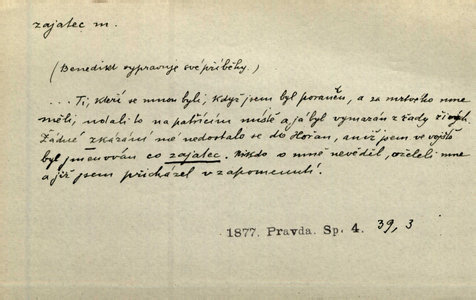 zajatec m.
(Benedikt vypravuje své příběhy.)
... Ti, kteří se mnou byli, když jsem byl poraněn, a za mrtvého mne
měli, udali to na patřičném místě a já byl vymazán z řady živých.
Žádné zkázání mé nedostalo se do Hořan, aniž jsem ve vojště
byl jmenován co zajatec. Nikdo o mně nevěděl, oželeli mne
a již jsem přicházel v zapomenutí.
1877. Pravda. Sp. 4. 39, 3